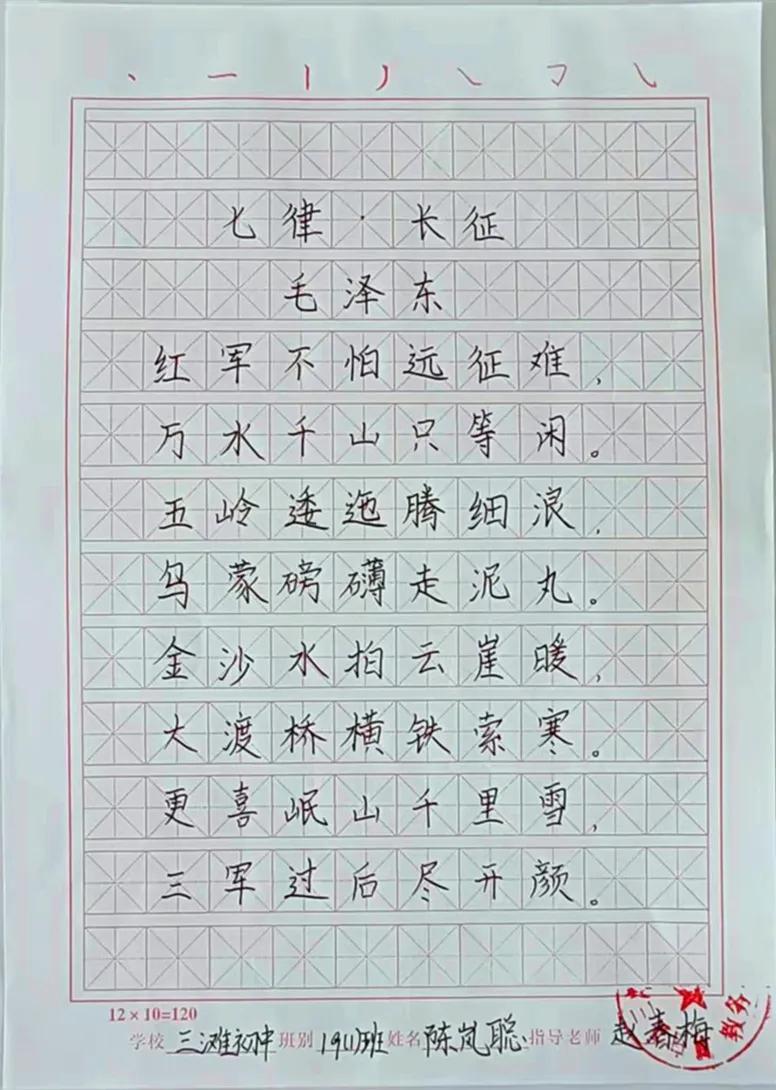 七律·长征
毛泽东
红军不怕远征难,
万水千山只等闲。
五岭逶迤腾细浪,
乌蒙磅礴走泥丸。
金沙水拍云崖暖,
大渡桥横铁索寒。
更喜岷山千里雪,
三军过后尽开颜。
12×10=120
学校 三滩初中 班别 1911班 姓名 陈岚聪 指导老师 赵春梅
教务